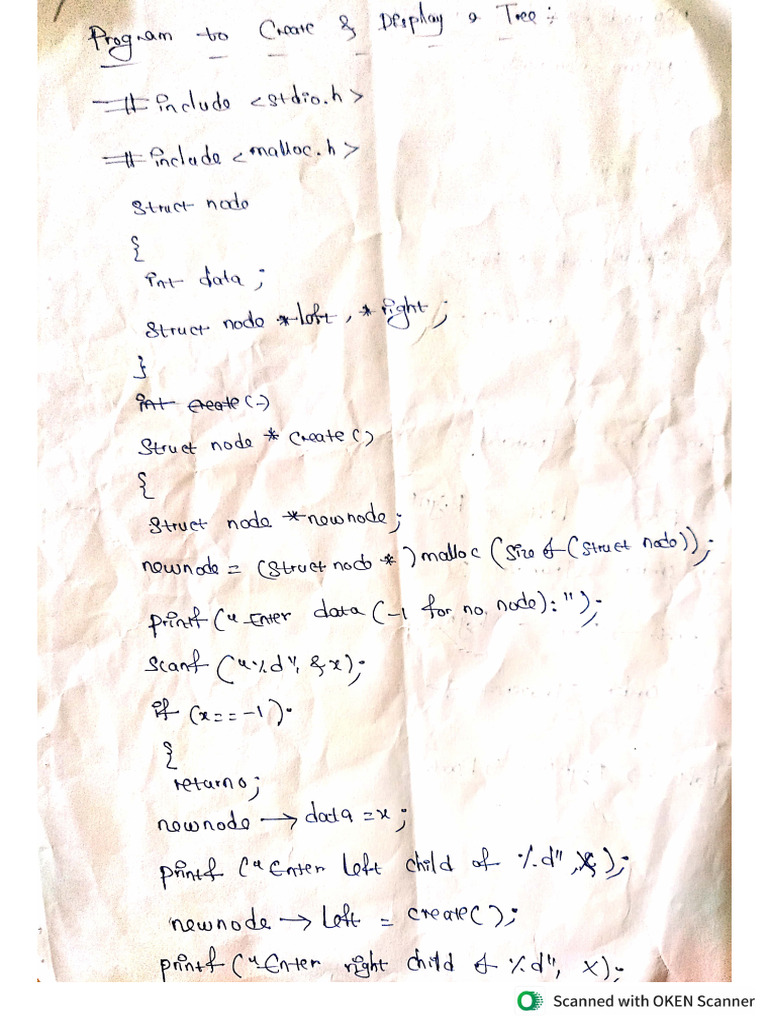 Program to Create & Display a Tree:
#include <stdio.h>
#include <malloc.h>
Struct node
{
int data;
Struct node *left, *right;
}
int create()
Struct node * Create()
{
Struct node *newnode;
newnode = (Struct node *) malloc (size of (Struct node));
printf ("Enter data (-1 for no node):");
Scanf ("%d", &x);
if (x==-1)
{
return 0;
newnode → data = x;
printf ("Enter left child of %d", x);
newnode → left = create();
printf ("Enter right child of %d", x);
Scanned with OKEN Scanner